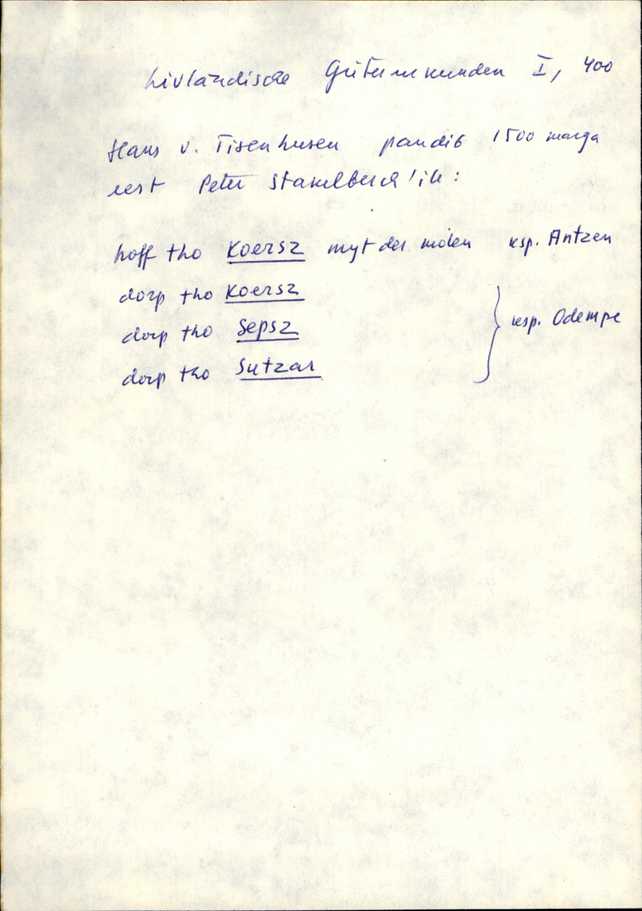 Livländische Güterurkunden I, 400
Hans v. Tisenhusen pandib 1500 marga
eest Peter Stakelberch'ile:
hoff tho Koersz myt der molen ksp. Antzen
dorp tho Koersz
dorp tho Sepsz ksp. Odempe
dorp tho Sutzar